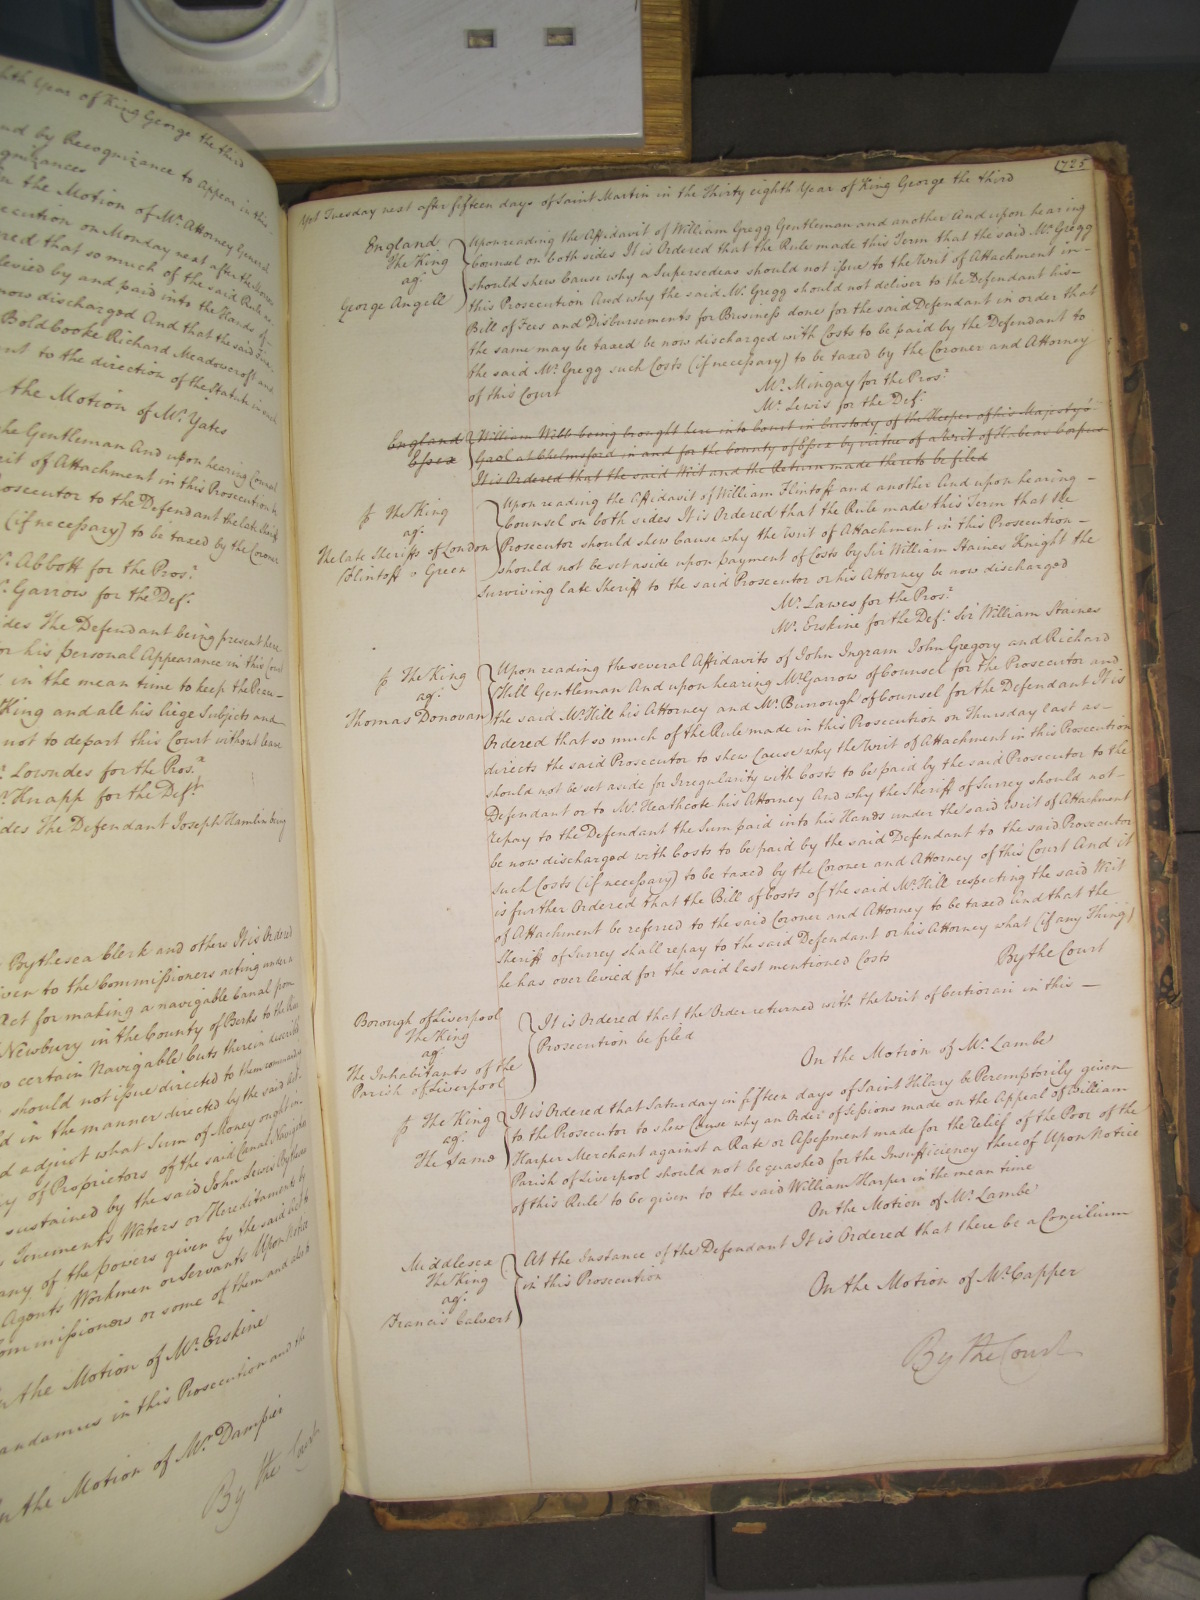 hth Year of King George the third
nd by Recognizance to Appear in this
gnizances
n the Motion of Mr. Attorney General
ecution on Monday next after the Morrow
red that so much of the said Rule as
levied by and paid into the Hands of
now discharged And that the said
Bold Cooke Richard Meadowcroft and
nt to the direction of the Statute in such
the Motion of Mr. Yates
he Gentleman And upon hearing Counsel
rit of Attachment in this Prosecution
osecutor to the Defendant the late Sheriff
(if necessary) to be taxed by the Coroner
r. Abbott for the Pros.r
r. Garrow for the Def.t
ides The Defendant being present here
or his personal Appearance in this Court
d in the mean time to keep the Peace
King and all his liege Subjects and
not to depart this Court without leave
r. Lowndes for the Pros.r
r. Knapp for the Def.t
ides The Defendant Joseph Hamlin being
Bythesea Clerk and others It is Ordered
iven to the Commissioners acting under
Act for making a navigable Canal from
Newbury in the County of Berks to the
o certain Navigable Cuts therein described
should not issue directed to them commanding
d in the manner directed by the said Act
d adjust what Sum of Money ought
y of Proprietors of the said Canal Navigation
sustained by the said John Lewis Bythesea
Tenements Waters or Hereditaments by
any of the powers given by the said Act
Agents Workmen or Servants Upon Notice
ommissioners or some of them and
n the Motion of Mr. Erskine
andamus in this Prosecution and the
n the Motion of Mr. Dampier
By the Court
1725
Yet Tuesday next after fifteen days of Saint Martin in the Thirty eighth Year of King George the third
England
The King
ag.t
George Angell
Upon reading the Affidavit of William Gregg Gentleman and another And upon hearing
Counsel on both sides It is Ordered that the Rule made this Term that the said Mr. Gregg
should shew Cause why a Supersedeas should not issue to the Writ of Attachment in
this Prosecution And why the said Mr. Gregg should not deliver to the Defendant his
Bill of Fees and Disbursements for Business done for the said Defendant in order that
the same may be taxed be now discharged with Costs to be paid by the Defendant to
the said Mr. Gregg such Costs (if necessary) to be taxed by the Coroner and Attorney
of this Court
Mr. Mingay for the Pros.r
Mr. Lewis for the Def.t
England
Essex
William Wills being brought here into Court in Custody of the Keeper of his Majesty's
Gaol at Chelmsford in and for the County of Essex by virtue of a Writ of Habeas Corpus
It is Ordered that the said Writ and the Return made thereto be filed
The King
ag.t
The late Sheriffs of London
Flintoff v Green
Upon reading the Affidavit of William Flintoff and another And upon hearing
Counsel on both sides It is Ordered that the Rule made this Term that the
Prosecutor should shew Cause why the Writ of Attachment in this Prosecution
should not be set aside upon payment of Costs by Sir William Staines Knight the
surviving late Sheriff to the said Prosecutor or his Attorney be now discharged
Mr. Lawes for the Pros.r
Mr. Erskine for the Def.t Sir William Staines
The King
ag.t
Thomas Donovan
Upon reading the several Affidavits of John Ingram John Gregory and Richard
Hill Gentleman And upon hearing Mr. Garrow of Counsel for the Prosecutor and
the said Mr. Hill his Attorney and Mr. Burrough of Counsel for the Defendant It is
Ordered that so much of the Rule made in this Prosecution on Thursday last as
directs the said Prosecutor to shew Cause why the Writ of Attachment in this Prosecution
should not be set aside for Irregularity with Costs to be paid by the said Prosecutor to the
Defendant or to Mr. Heathcote his Attorney And why the Sheriff of Surrey should not
repay to the Defendant the Sum paid into his Hands under the said Writ of Attachment
be now discharged with Costs to be paid by the said Defendant to the said Prosecutor
such Costs (if necessary) to be taxed by the Coroner and Attorney of this Court And it
is further Ordered that the Bill of Costs of the said Mr. Hill respecting the said Writ
of Attachment be referred to the said Coroner and Attorney to be taxed And that the
Sheriff of Surrey shall repay to the said Defendant or his Attorney what (if any Thing)
he has over levied for the said last mentioned Costs
By the Court
Borough of Liverpool
The King
ag.t
The Inhabitants of the
Parish of Liverpool
It is Ordered that the Order returned with the Writ of Certiorari in this
Prosecution be filed
On the Motion of Mr. Lambe
The King
ag.t
The Same
It is Ordered that Saturday in fifteen days of Saint Hilary be Peremptorily given
to the Prosecutor to shew Cause why an Order of Sessions made on the Appeal of William
Harper Merchant against a Rate or Assessment made for the Relief of the Poor of the
Parish of Liverpool should not be quashed for the Insufficiency thereof Upon Notice
of this Rule to be given to the said William Harper in the mean time
On the Motion of Mr. Lambe
Middlesex
The King
ag.t
Francis Calvert
At the Instance of the Defendant It is Ordered that there be a Concilium
in this Prosecution
On the Motion of Mr. Capper
By the Court